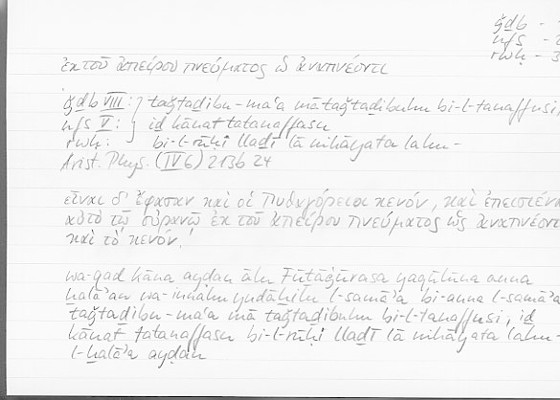 ǧḏb -
nfs -
rwḥ -
ἐκ τοῦ ἀπείρου πνεύματος ὡς ἀναπνέοντι
ǧḏb VIII : } taǧtaḏibu-maʿa mā taǧtaḏibuhu bi-l-tanaffusi,
nfs V : iḏ kānat tatanaffasu
rwḥ : bi-l-rūḥi llaḏī lā nihāyata lahu-
Arist. Phys. (IV 6) 213b 24
εἶναι δ' ἔφασαν καὶ οἱ Πυθαγόρειοι κενόν, καὶ ἐπεισιέναι
αὐτὸ τῷ οὐρανῷ ἐκ τοῦ ἀπείρου πνεύματος ὡς ἀναπνέοντι
καὶ τὸ κενόν.
wa-qad kāna ayḍan ālu Fūṯāġūrasa yaqūlūna anna
ḫalāʾan wa-innahu yudāḫilu l-samāʾa bi-anna l-samāʾa
taǧtaḏibu-maʿa mā taǧtaḏibuhu bi-l-tanaffusi, iḏ
kānat tatanaffasu bi-l-rūḥi llaḏī lā nihāyata lahu-
l-ḫalāʾa ayḍan